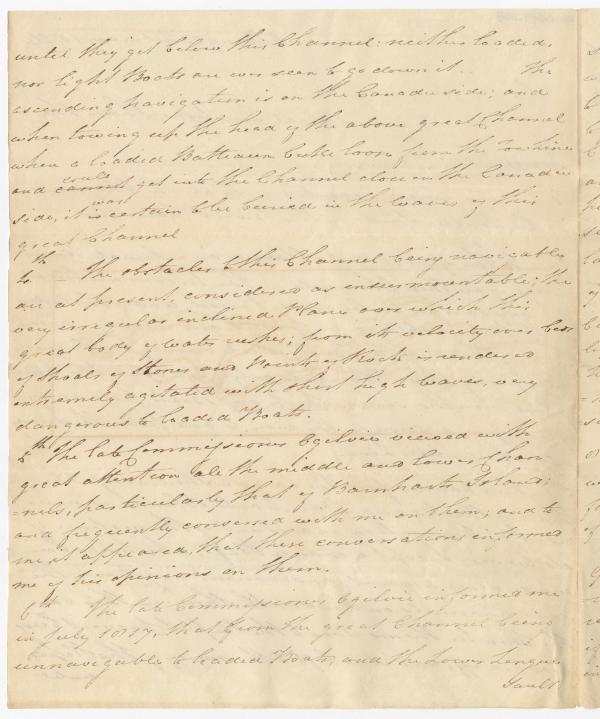 until they get below this Channel: neither loaded,
nor light Boats are ever seen to go down it. The
ascending navigation is on the Canada side; and
when towing up the head of the above great Channel
when a loaded Batteaux broke loose from the Tow line
could
and cannot get into the Channel close on the Canada
was
side, it is certain to be buried in the waves of this
great Channel
4th The obstacles to this Channel being navigable
are at present, considered as insurmountable; the
very irregular inclined Plane over which this
great body of water rushes; from its velocity over beds
of Shoals of Stones and Points of Rock is rendered
extremely agitated with short high waves, very
dangerous to loaded Boats.
5th The late Commissioner Ogilvie viewed with
great attention all the middle and lower Chan
=nels, particularly that of Barnharts Island;
and frequently conversed with me on them; and to
me it appeared, that these conversations informed
me of his opinions on them.
6th The late Commissioner Ogilvie informed me
in July 1817, that from the great Channel being
unnavigable to loaded Boats, and the Lower Longue
Sault